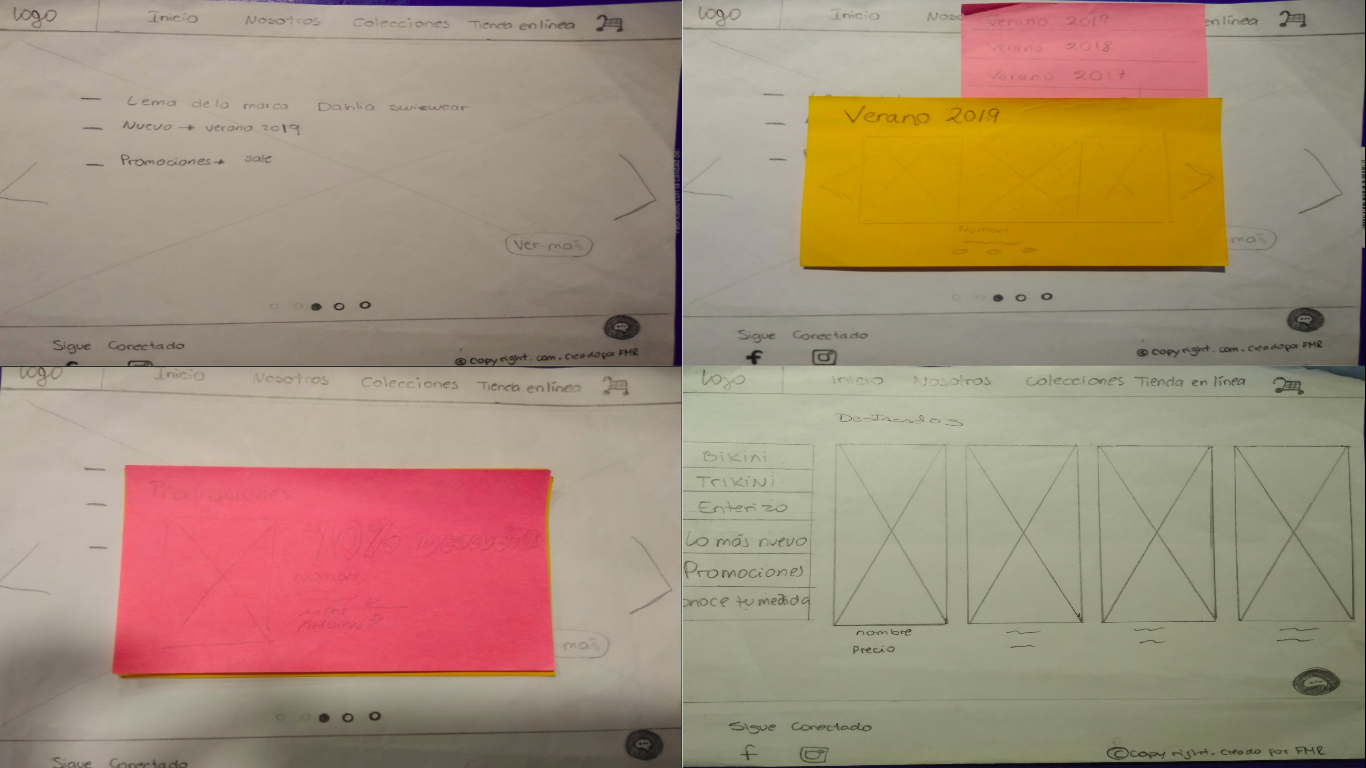 Logo Inicio Nosotros Colecciones Tienda en línea
Lema de la marca Dahlia swiewear
Nuevo → verano 2019
Promociones → sale
Ver más
Sigue Conectado
© Copyright. com. Creado por FMR
Logo Inicio Nos en línea
Verano 2019
Verano 2018
Verano 2017
Verano 2019
Nombre
más
Sigue Conectado
f
© Copyright. com. Creado por FMR
Logo Inicio Nosotros Colecciones Tienda en línea
Promociones
40%
nombre
antes
más
Sigue Conectado
Logo Inicio Nosotros Colecciones Tienda en línea
Bikini
Trikini
Enterizo
Lo más nuevo
Promociones
onoce tu medida
nombre
Precio
Sigue Conectado
f
© Copyright. Creado por FMR